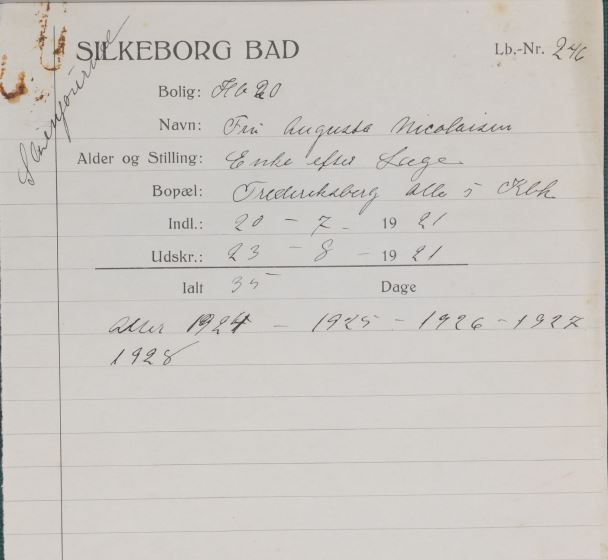 SILKEBORG BAD
Lb.-Nr. 246
Bolig: Hb 20
Navn: Fru Augusta Nicolaisen
Alder og Stilling: Enke efter Læge
Bopæl: Frederiksberg Alle 5 Kbh
Indl.: 20 - 7 - 1921
Udskr.: 23 - 8 - 1921
Ialt 35 Dage
atter 1924 - 1925 - 1926 - 1927
1928